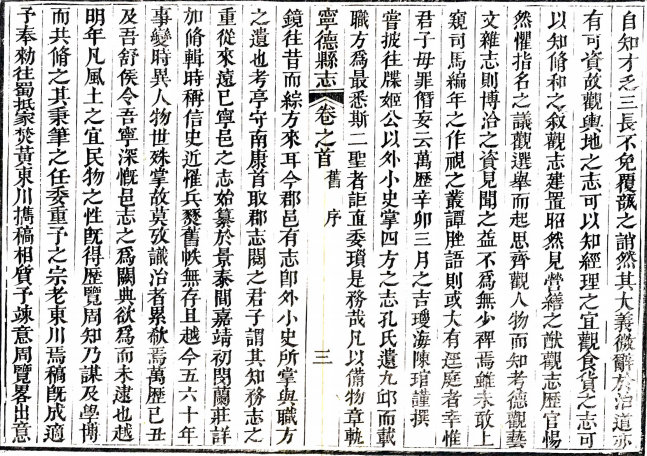 自知才乏三長不免覆瓿之誚然其大義微辭於治道亦
有可資故觀輿地之志可以知經理之宜觀食貨之志可
以知脩和之敘觀志建置昭然見營繕之猷觀志歷官惕
然懼指名之議觀選舉而起思齊觀人物而知考德觀藝
文雜志則博洽之資見聞之益不爲無少裨焉雖未敢上
窺司馬編年之作視之叢譚脞語則或大有逕庭者幸惟
君子毋罪僭妄云萬歷辛卯三月之吉瓊海陳琯謹撰
嘗披往牒姬公以外小史掌四方之志孔氏遺九邱而載
職方爲最悉斯二聖者詎直委瑣是務哉凡以備物章軌
寧德縣志
卷之首
舊序
三
鏡往昔而綜方來耳今郡邑有志卽外小史所掌與職方
之遺也考亭守南康首取郡志閱之君子謂其知務志之
重從來遠已寧邑之志始纂於景泰間嘉靖初閔蘭莊詳
加脩輯時稱信史近罹兵燹舊帙無存且越今五六十年
事變時異人物世殊掌故莫攷識治者累欷焉萬歷己丑
及吾舒侯令吾寧深慨邑志之爲闕典欲爲而未逮也越
明年凡風土之宜民物之性旣得歷覽周知乃謀及學博
而共脩之其秉筆之任委重予之宗老東川焉稿旣成適
予奉勑往蜀抵家焚黃東川攜稿相質予竦意周覽畧出意